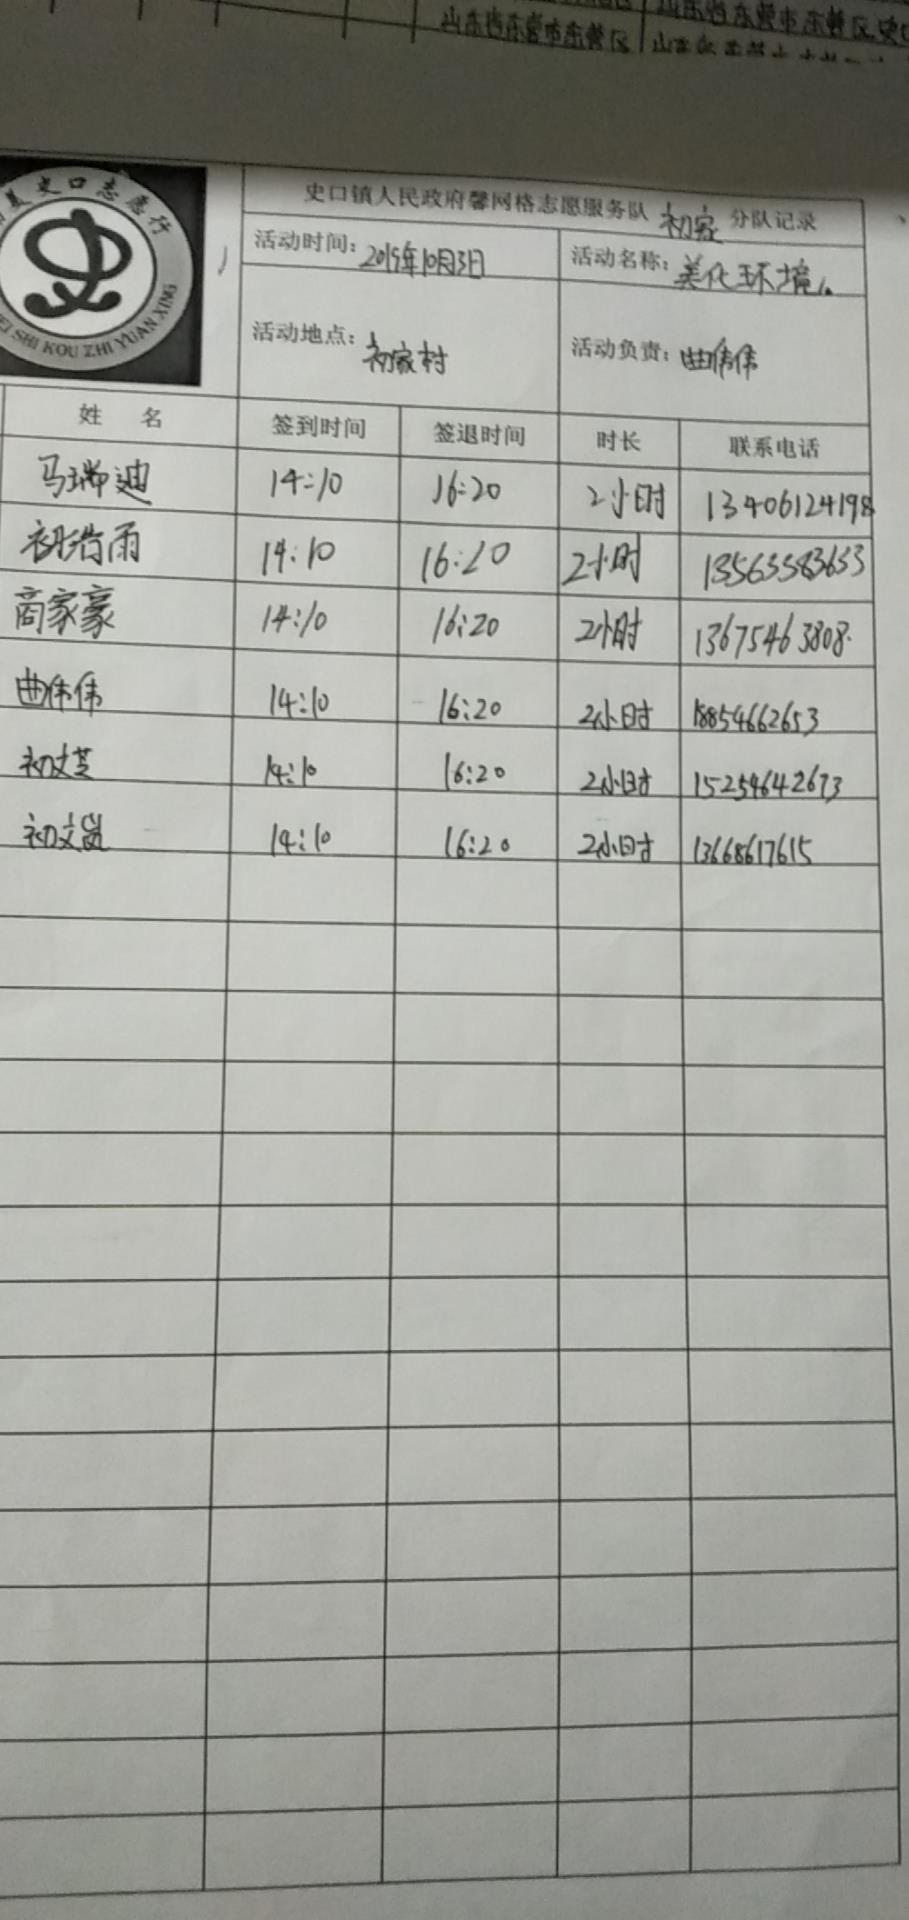 山东省东营市东营区
山东省东营市东营区史口
美史口志愿行
EI SHI KOU ZHI YUAN XING
史口镇人民政府馨网格志愿服务队 初家 分队记录
活动时间：2019年10月3日 活动名称：美化环境。
活动地点：初家村 活动负责：曲伟伟
姓 名 签到时间 签退时间 时长 联系电话
马瑞迪 14:10 16:20 2小时 13406124198
初浩雨 14:10 16:20 2小时 13563583653
商家豪 14:10 16:20 2小时 13675463808.
曲伟伟 14:10 16:20 2小时 18854662653
初文芝 14:10 16:20 2小时 15254642673
初文 14:10 16:20 2小时 13668617615